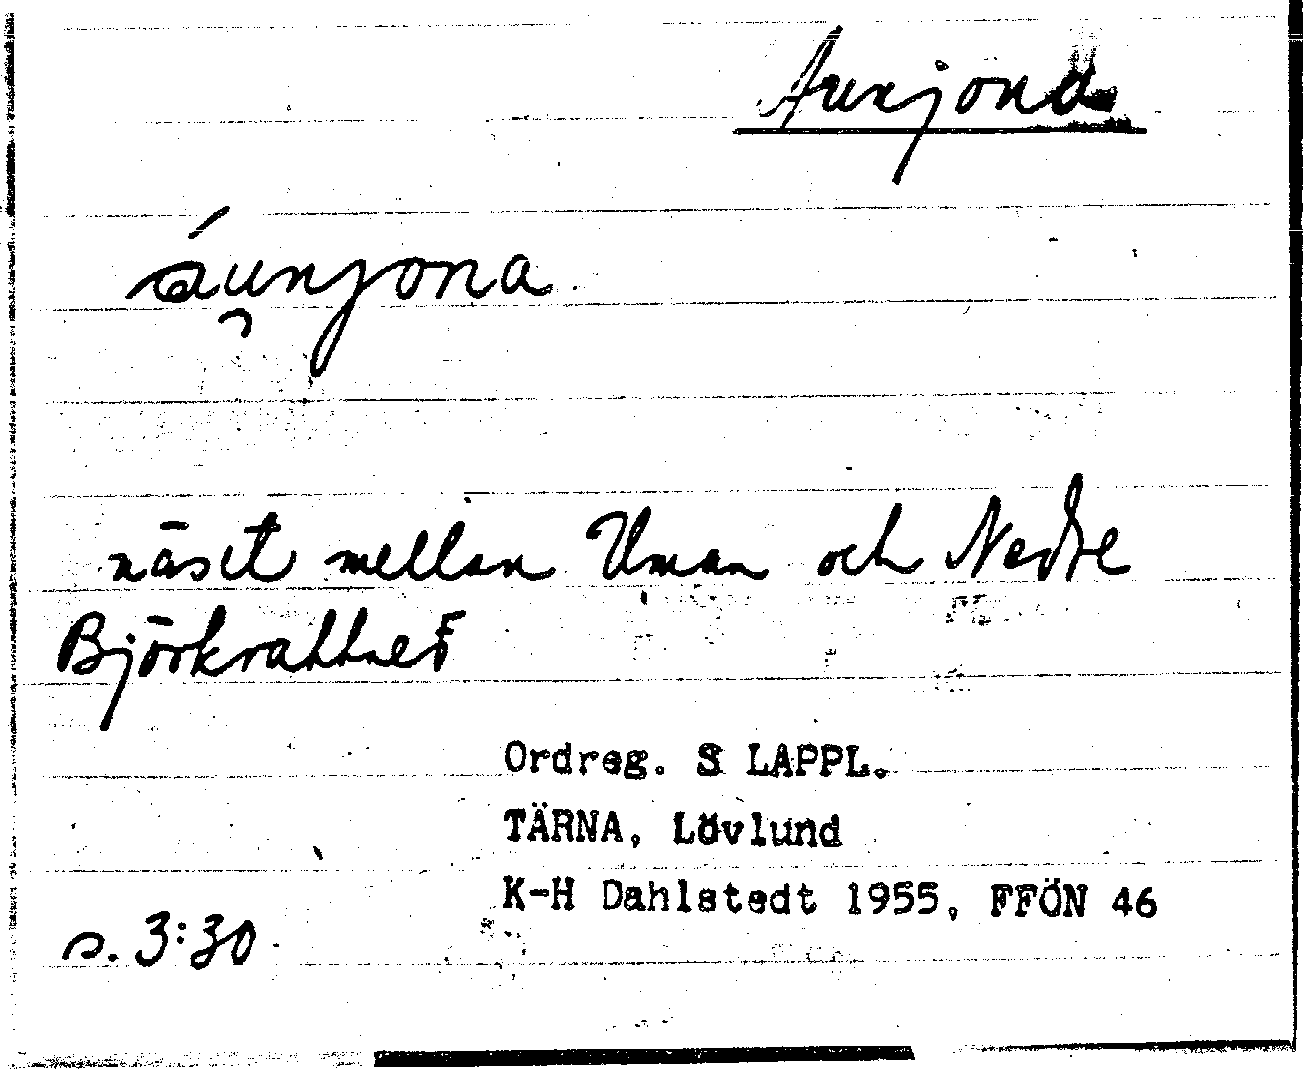 Aunjona
áu̯njona
näset mellan Uman och Nedre
Björkvattnet
Ordreg. S LAPPL.
TÄRNA, Lövlund
K-H Dahlstedt 1955, FFÖN 46
s. 3:30